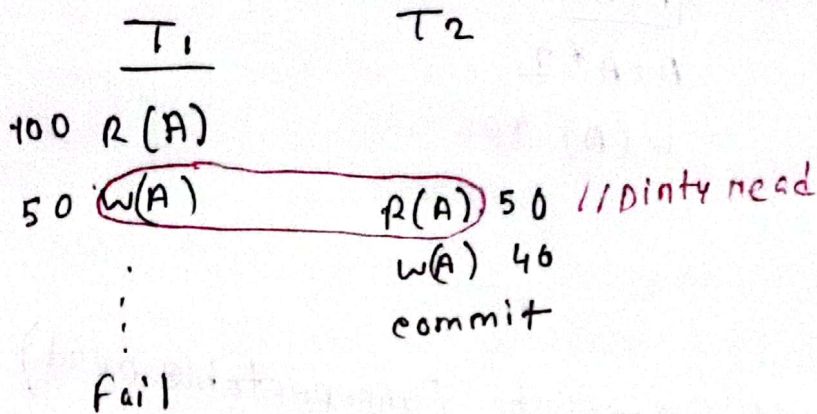 T1 T2
100 R(A)
50 W(A) R(A) 50 //Dirty read
W(A) 40
commit
Fail